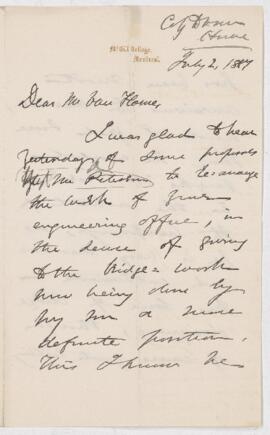 McGill College,
Montreal.
July 2, 1887
Dear Mr Van Horne,
I was glad to hear
yesterday of some proposal
Mr Peterson to re-arrange
the work of your
engineering office, in
the sense of giving
to the bridge work
now being done by
my son a more
definite position.
This I know he